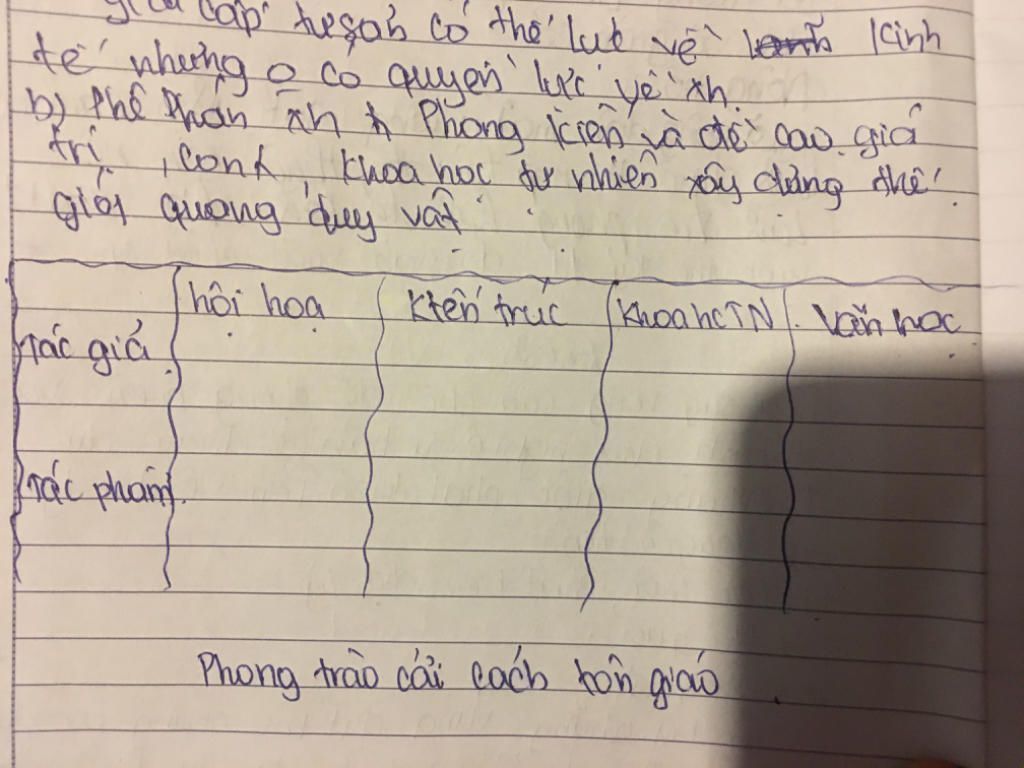 giai cấp tư sản có thế lực về kinh
tế nhưng o có quyền lực về xh.
b) Phê phán xh Phong kiến và đề cao giá
trị, con khoa học tự nhiên xây dựng thế
giới quang duy vật
hội hoạ kiến trúc khoa hcTN văn học
Tác giả
Tác phẩm
Phong trào cải cách tôn giáo